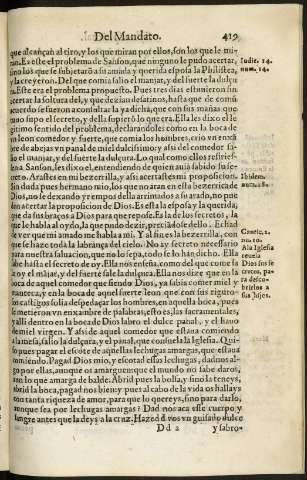 Del Mandato. 419
que alcançan al tiro, y los que miran por ellos, son los que le mi-
ran. Es este el problema de Sanson, que ninguno le pudo acertar,
sino los que se subjetarõ a su amiga y querida esposa la Philistea,
y la creyeron. Del que comia salio el manjar, y del fuerte la dulçu
ra. Este era el problema propuesto. Pues tres dias estunieron sin
acertar la soltura del, y que dezian desatinos, hasta que de comũ
acuerdo se fueron a consultar la ya dicha, que con sus mañas que
uno supo el secreto, y della supierõ lo que era. Ella les dixo el le
gitimo sentido del problema, declarandoles como en la boca de
vn leon comedor y fuerte, que comia los hombres, criò vn enxã
bre de abejas vn panal de miel dulcissimo: y assi del comedor sa-
lio el manjar, y del fuerte la dulçura. Lo qual como ellos resfiries-
sen a Sanson, les dixo el, entendiendo de quien auiã sabido su se-
creto. Arastes en mi bezerrilla, y assi acertastes mi proposicion.
Sin duda pues hermano mio, los que no aran en esta bezerrica de
Dios, no se dexando y tiempos della arrimados a su arado, no pue
den acertar la proposicion de Dios. Es esta la esposa y la querida,
que da sus braços a Dios para que repose. Es la de los secretos, la
que le habla al oydo, la que pudo dezir, preciãdose dello. Echad
de ver que mi amado me habla a mi. Y al fin es la bezerrilla, con
que se haze toda la labrança del cielo. No ay secreto necessario
para nuestra saluacion, que no lo sepa, todo se lo han dicho. Ella
sabe hasta el secreto de oy. Ella nos enseña, como del que come sa
le oy el mãjar, y del fuerte sale la dulçura. Ella nos dize que en la
boca de aquel comedor que siendo Dios, ya sabia comer miel y
manteca, y en la boca de aquel fuerte leon, que con sus riguro-
sos castigos solia despedaçar los hombres, en aquella boca, pues
se metieron vn enxambre de palabras, esto es, las sacramentales,
y alli dentro en la boca de Dios labro el dulce panal, y el hano
de miel virgen. Y assi de aquel comedor que estaua comiendo
a la mesa, salio la dulçura, y el panal, que consuela la Iglesia. Qui-
so pues pagar el escote de aquellas lechugas amargas, que estaua
comiendo. Pagad Dios mio, y escotad essas lechugas, dadnos al-
go por ellas, aunque os amarguen: que el mundo no sabe daros,
sino lo que amarga de balde. Abrid pues la bolsa, y sino la teneys,
abrid la boca, pagad nos bien: y pues al cabo de la vida os hallays
con tanta riqueza de amor, para que lo quereys, sino para darlo,
aunque sea por lechugas amargas? Dad nos aca esse cuerpo y
sangre antes que la deys a la cruz. Hazed d vos vn guisado dulce
Dd 2 y sabro-
Iudic. 14.
num. 14.
Ibidem.
num. 18.
Cantic. 2.
nu. 10.
A la Iglesia
reuela
Dios sus se
cretos, pa-
ra descu-
brirlos a
sus hijos.